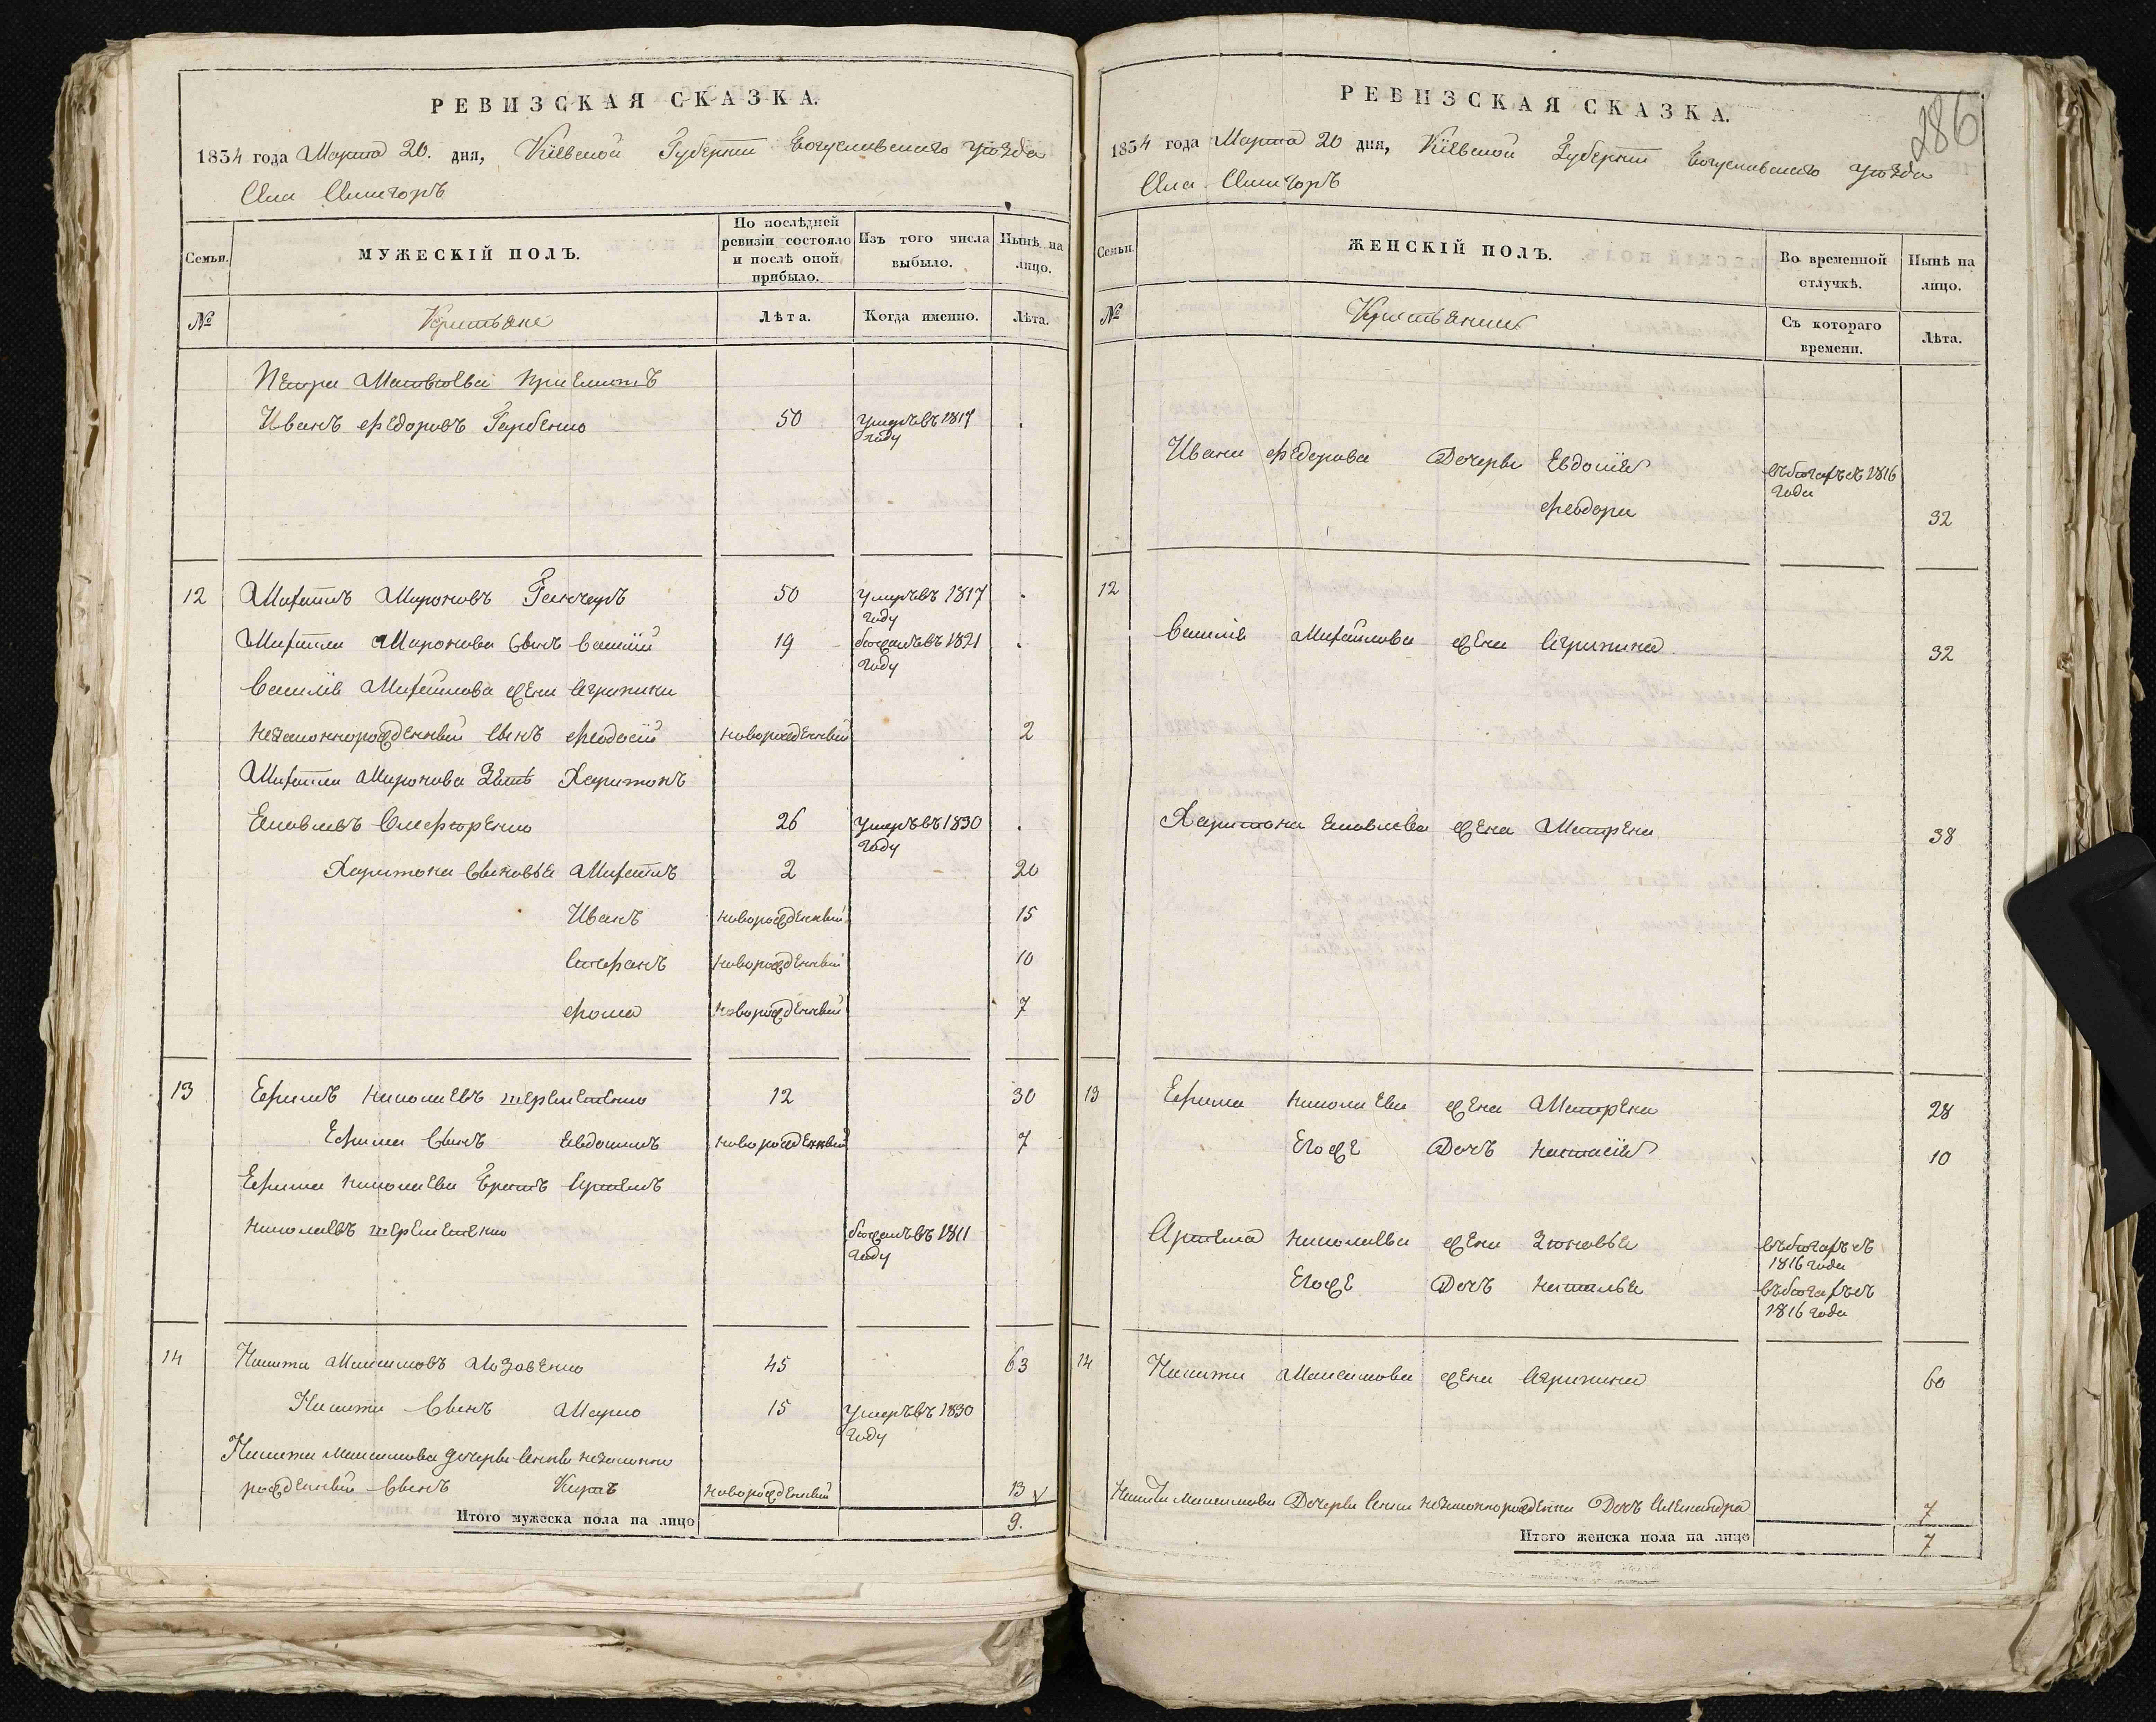 РЕВИЗСКАЯ СКАЗКА.
1834 года Марта 20. дня, Кіевской Губерніи Богуславскаго уѣзда
Села
Семьи. МУЖЕСКІЙ ПОЛЪ. По послѣдней ревизіи состояло и послѣ оной прибыло. Изъ того числа выбыло. Нынѣ на лицо.
№ Крестьяне Лѣта. Когда именно. Лѣта.
Петра Матвѣева приемышъ
Иванъ Федоровъ Гарбенко 50 умеръ въ году
12 Михаилъ Мироновъ 50 умеръ въ 1817 году
Михаила Миронова Сынъ Василій 19 бѣжалъ въ 1821 году
Василія Михайлова жены Агрипины
незаконнорожденный сынъ Феодосій новорожденный 2
Михаила Миронова Зять Харитонъ
Яковлевъ 26 умеръ въ 1830 году
Харитона Сыновья Михаилъ 2 20
Иванъ новорожденный 15
Стефанъ новорожденный 10
Фома новорожденный 7
13 Ефимъ Николаевъ Шереметенко 12 30
Ефима Сынъ Евдокимъ новорожденный 7
Ефима Николаева Братъ Артемъ
Николаевъ Шереметенко бѣжалъ въ 1811 году
14 Никита Максимовъ Мозовенко 45 63
Никиты Сынъ Марко 15 умеръ въ 1830 году
Никиты Максимова дочери Анны незаконно
рожденный Сынъ новорожденный 13
Итого мужеска пола на лицо 9.
286
РЕВИЗСКАЯ СКАЗКА.
1834 года Марта 20 дня, Кіевской Губерніи Богуславскаго уѣзда
Села
Семьи. ЖЕНСКІЙ ПОЛЪ. Во временной отлучкѣ. Нынѣ на лицо.
№ Крестьянки Съ котораго времени. Лѣта.
Ивана Федорова Дочери Евдокія въ бѣгахъ съ 1816 года
Феодора 32
12
Василія Михайлова жена Агрипина 32
Харитона Яковлева жена Матрена 38
13 Ефима Николаева жена Матрена 28
Егоже Дочь Настасія 10
Артема Николаева жена Зиновья въ бѣгахъ съ 1816 года
Егоже Дочь Наталья въ бѣгахъ съ 1816 года
14 Никиты Максимова жена Агрипина 60
Никиты Максимова Дочери Анны незаконнорожденна Дочь Александра 7
Итого женска пола на лицо 7